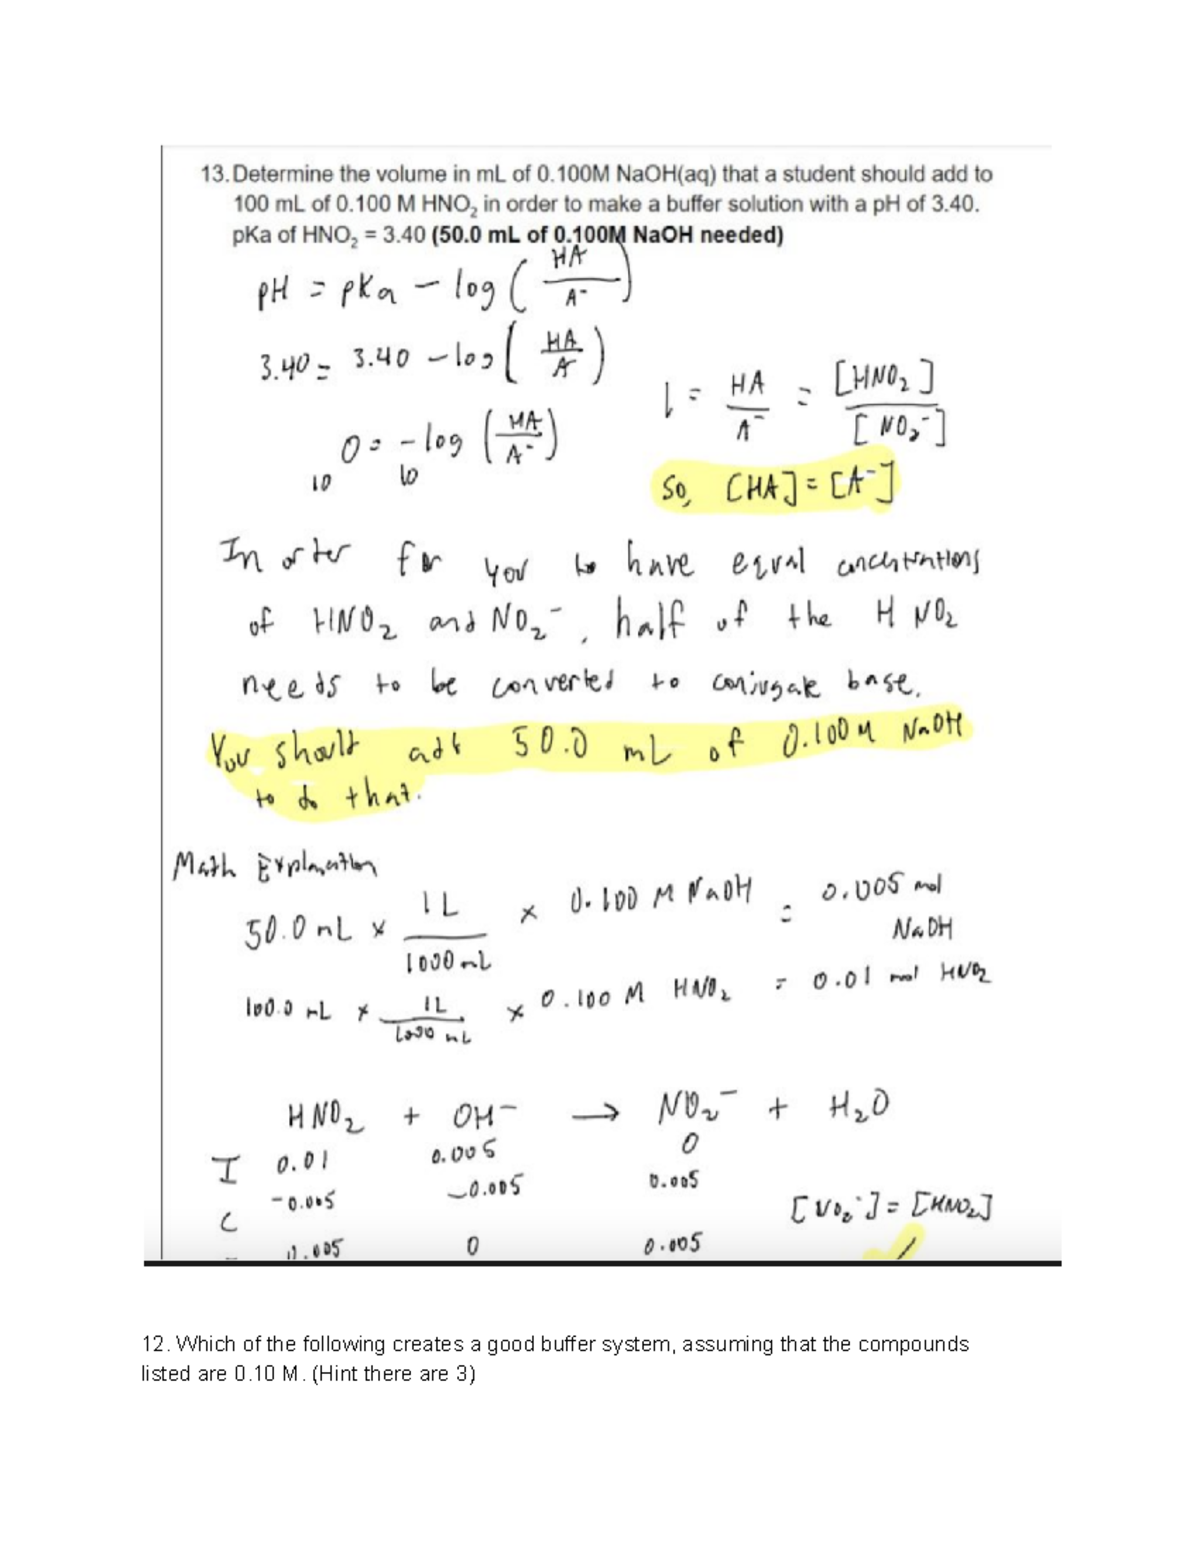 13. Determine the volume in mL of 0.100M NaOH(aq) that a student should add to
100 mL of 0.100 M HNO₂ in order to make a buffer solution with a pH of 3.40.
pKa of HNO₂ = 3.40 (50.0 mL of 0.100M NaOH needed)
pH = pKa - log ( HA / A⁻ )
3.40 = 3.40 - log ( HA / A )
0 = - log ( HA / A⁻ )
10 10
1 = HA / A⁻ = [HNO₂] / [NO₂⁻]
So, [HA] = [A⁻]
In orter for you to have equal concentrations
of HNO₂ and NO₂⁻, half of the HNO₂
needs to be converted to conjugate base.
You should add 50.0 mL of 0.100 M NaOH
to do that.
Math Explanation
50.0 mL × 1 L / 1000 mL × 0.100 M NaOH = 0.005 mol
NaOH
100.0 mL × 1L / 1000 mL × 0.100 M HNO₂ = 0.01 mol HNO₂
HNO₂ + OH⁻ → NO₂⁻ + H₂O
I 0.01 0.005 0
C -0.005 -0.005 0.005
[NO₂⁻] = [HNO₂]
0.005 0 0.005
12. Which of the following creates a good buffer system, assuming that the compounds
listed are 0.10 M. (Hint there are 3)